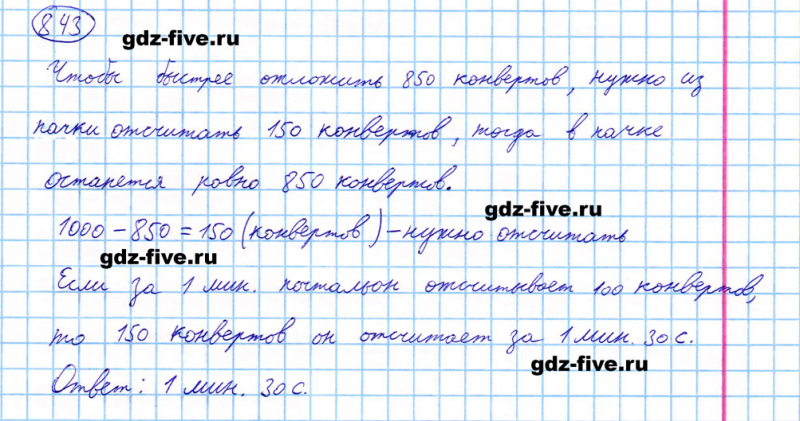 843
gdz-five.ru
Чтобы быстрее отложить 850 конвертов, нужно из
пачки отсчитать 150 конвертов, тогда в пачке
останется ровно 850 конвертов.
gdz-five.ru
1000 - 850 = 150 (конвертов) - нужно отсчитать
gdz-five.ru
Если за 1 мин. почтальон отсчитывает 100 конвертов,
то 150 конвертов он отсчитает за 1 мин. 30 с.
gdz-five.ru
Ответ: 1 мин. 30 с.